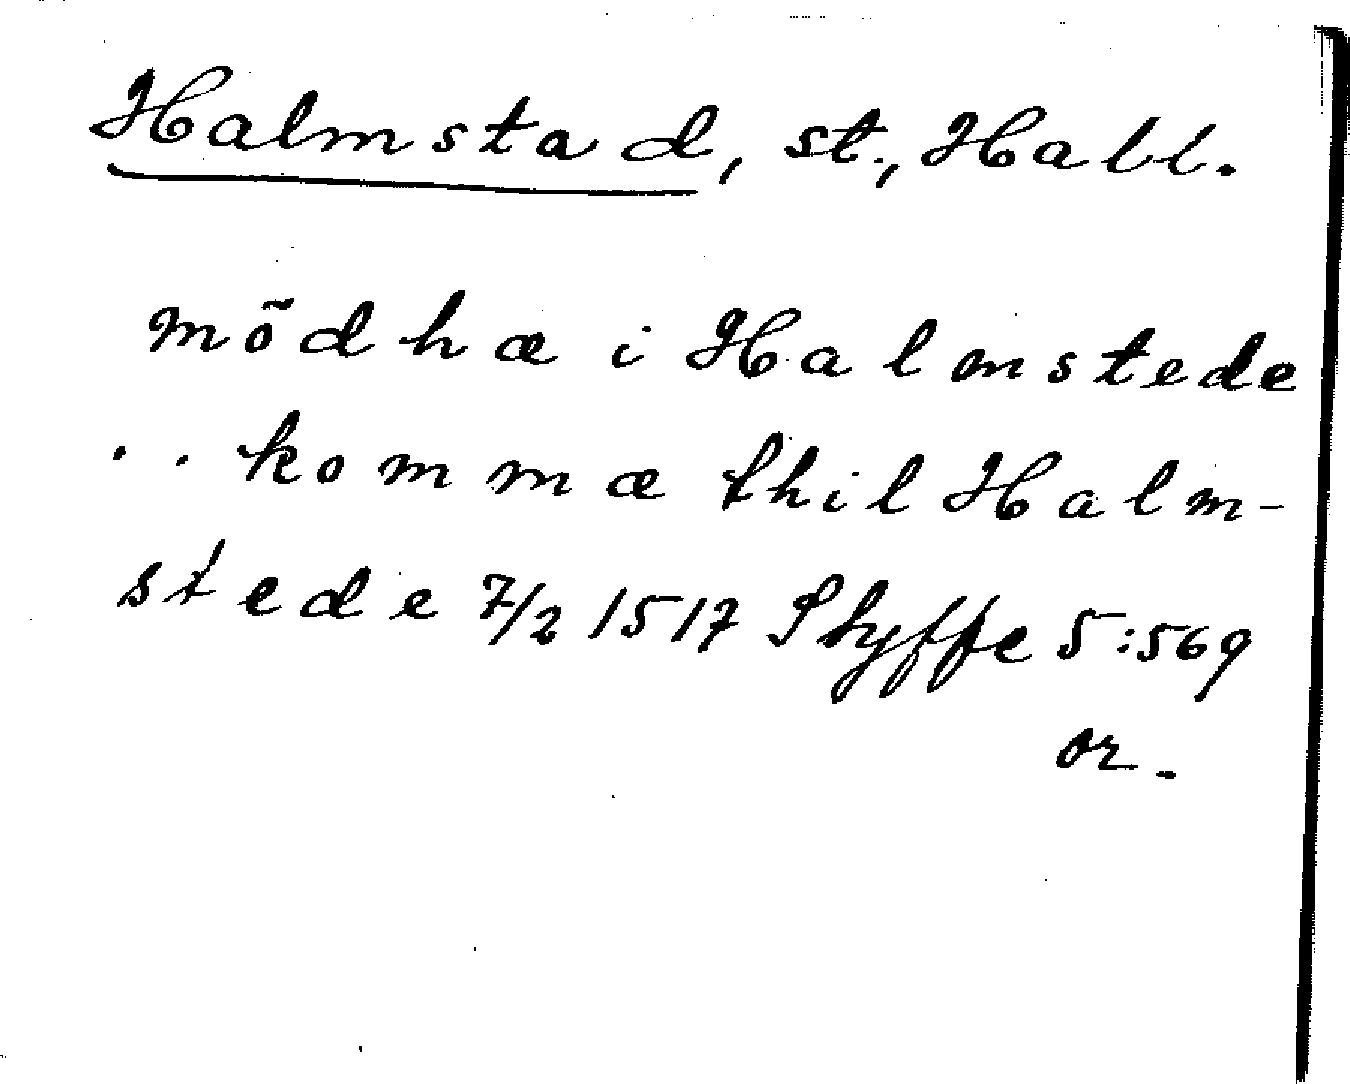 Halmstad, st., Hall.
mõdhæ i Halmstede
.. kommæ thil Halm-
stede 7/2 1517 Styffe 5:569
or.